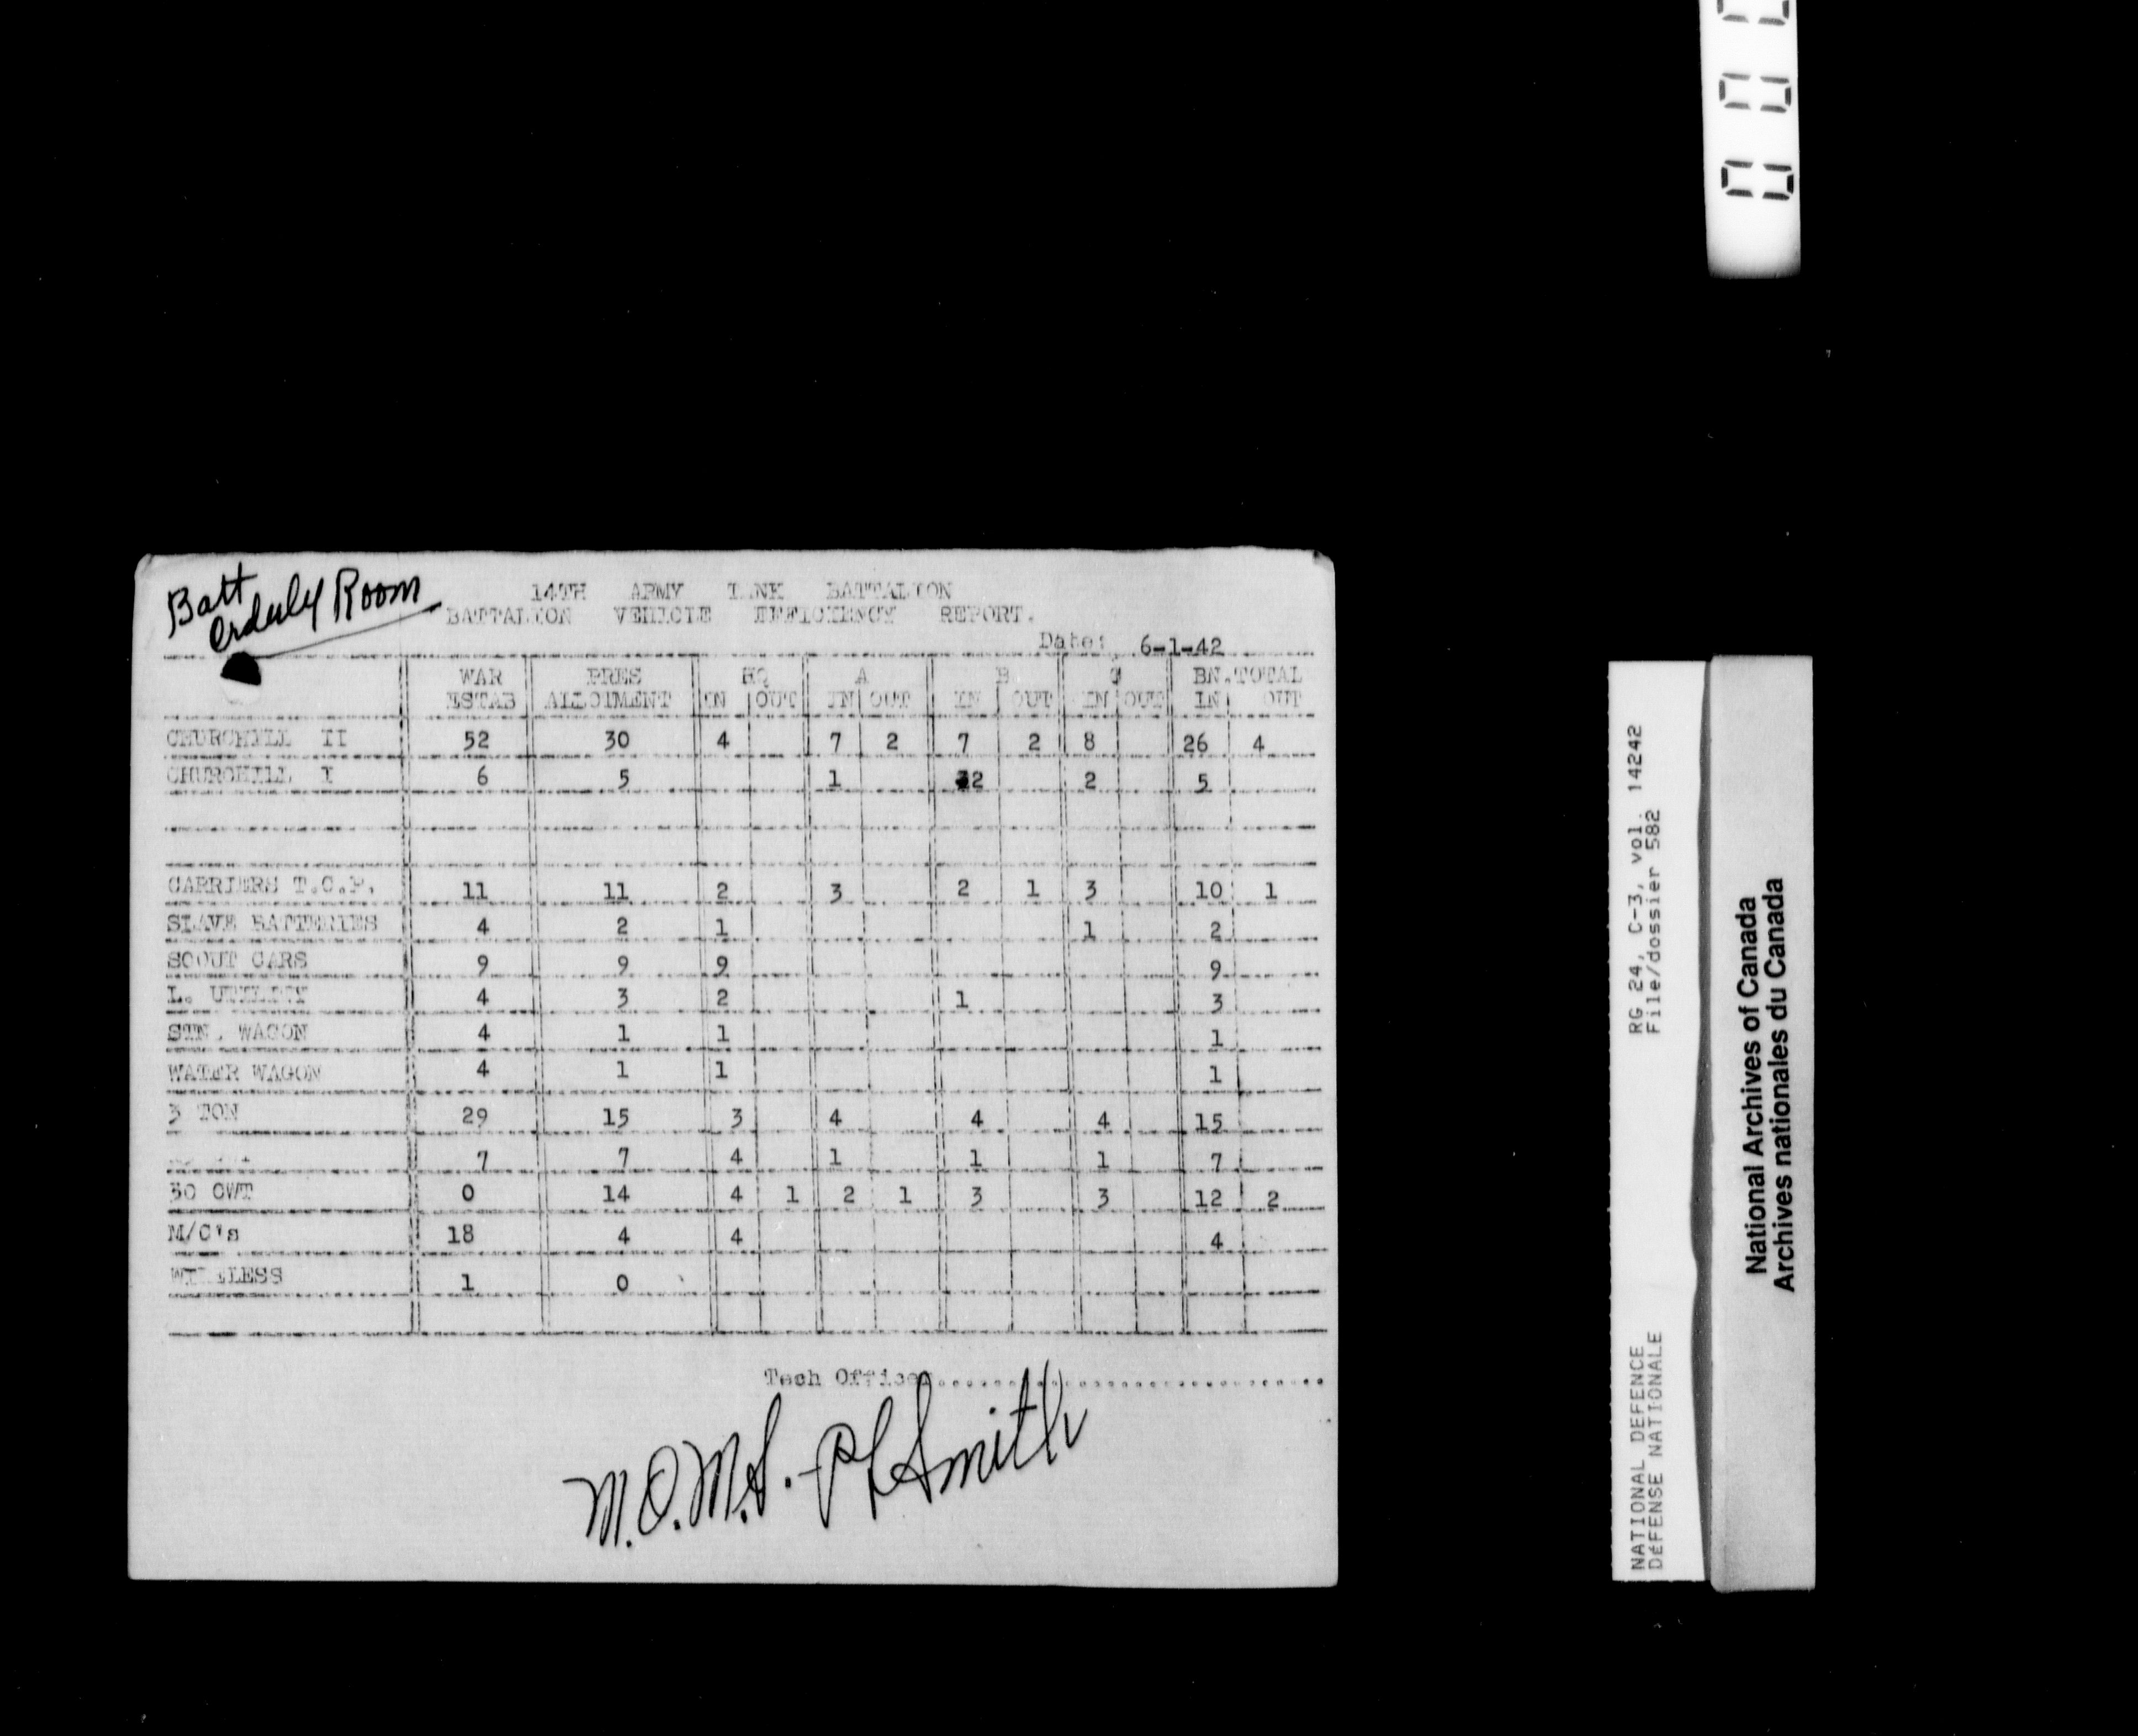 Batt
Orderly Room
14TH ARMY TANK BATTALION
BATTALION VEHICLE EFFICIENCY REPORT.
Date: 6-1-42
WAR PRES HQ A B C BN.TOTAL
ESTAB ALLOTMENT IN OUT IN OUT IN OUT IN OUT IN OUT
CHURCHILL II 52 30 4 7 2 7 2 8 26 4
CHURCHILL I 6 5 1 2 2 5
CARRIERS T.C.P. 11 11 2 3 2 1 3 10 1
SLAVE BATTERIES 4 2 1 1 2
SCOUT CARS 9 9 9 9
L. UTILITY 4 3 2 1 3
STN. WAGON 4 1 1 1
WATER WAGON 4 1 1 1
3 TON 29 15 3 4 4 4 15
7 7 4 1 1 1 7
30 CWT 0 14 4 1 2 1 3 3 12 2
M/C's 18 4 4 4
WIRELESS 1 0
Tech Officer..............................
M.Q.M.S. Smith
RG 24, C-3, vol. 14242
File/dossier 582
NATIONAL DEFENCE
DÉFENSE NATIONALE
National Archives of Canada
Archives nationales du Canada